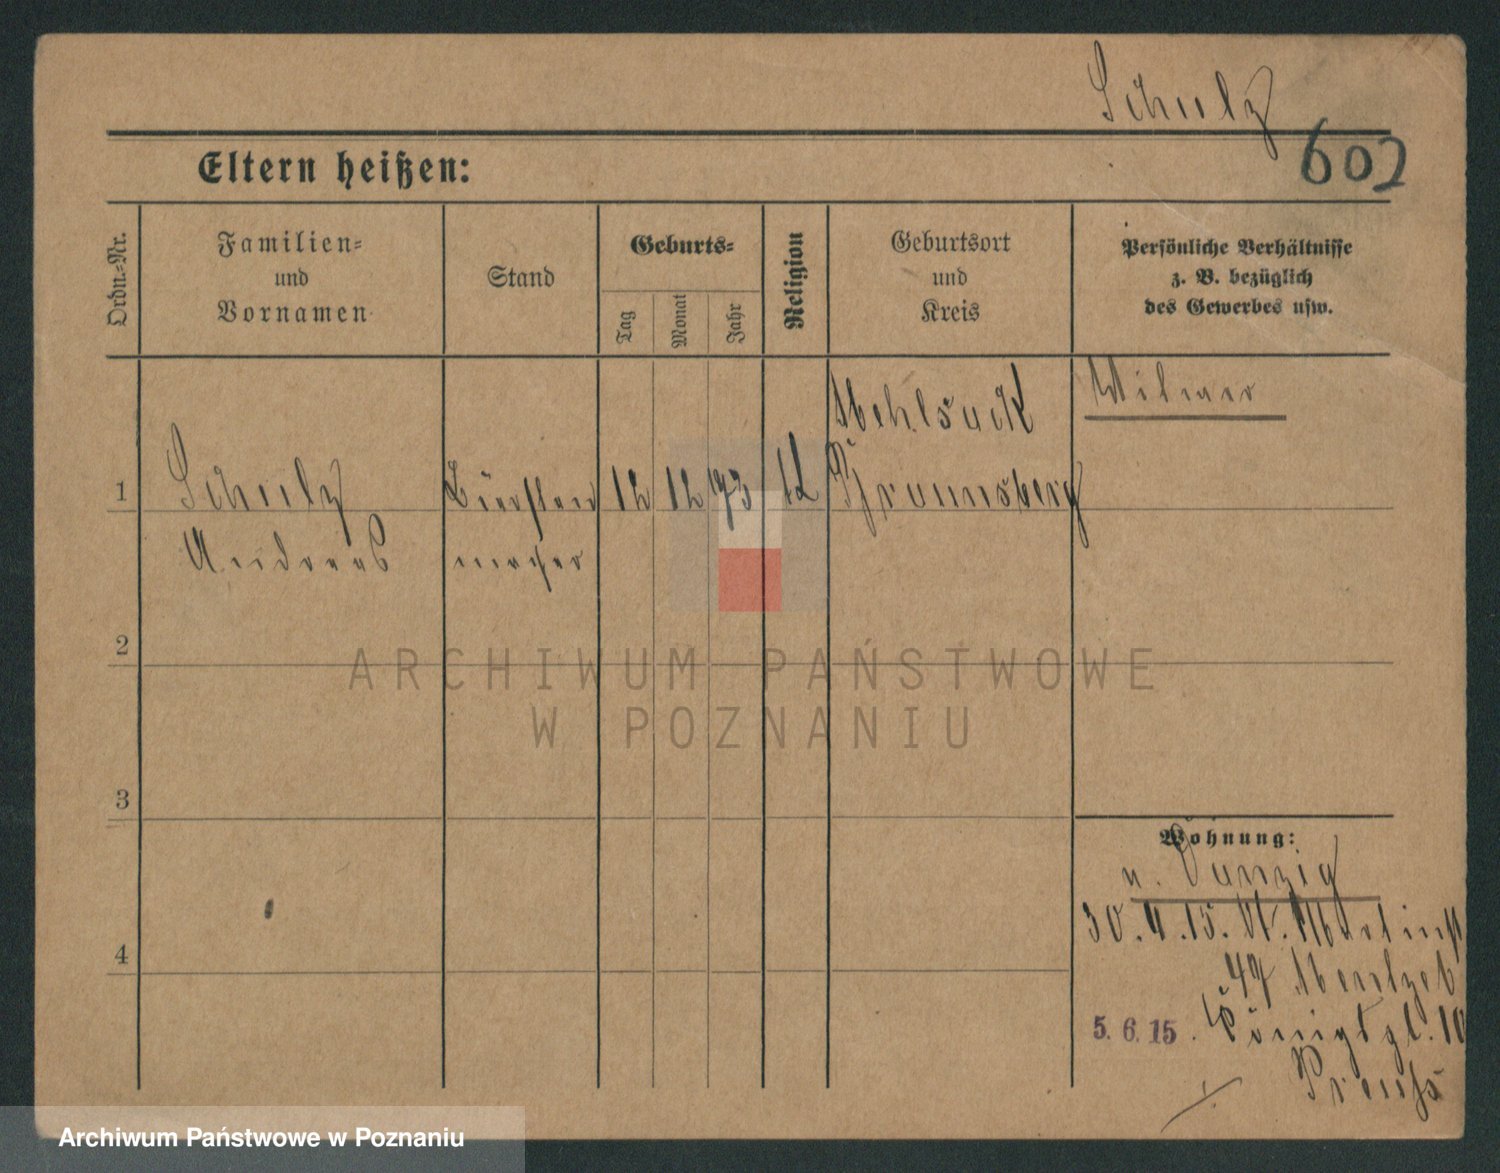 Schulz
602
Eltern heißen:
Ordn.-Nr.
Familien-
und
Vornamen
Stand
Geburts-
Tag
Monat
Jahr
Religion
Geburtsort
und
Kreis
Persönliche Verhältnisse
z. B. bezüglich
des Gewerbes usw.
Mehlsack
Witwer
1
Schulz
Bürsten
12
12
73
Braunsberg
Andreas
macher
2
ARCHIWUM PAŃSTWOWE
W POZNANIU
3
Wohnung:
n. Danzig
30.4.15. St. Martinst
47
5.6.15. Königspl. 10
4
Archiwum Państwowe w Poznaniu